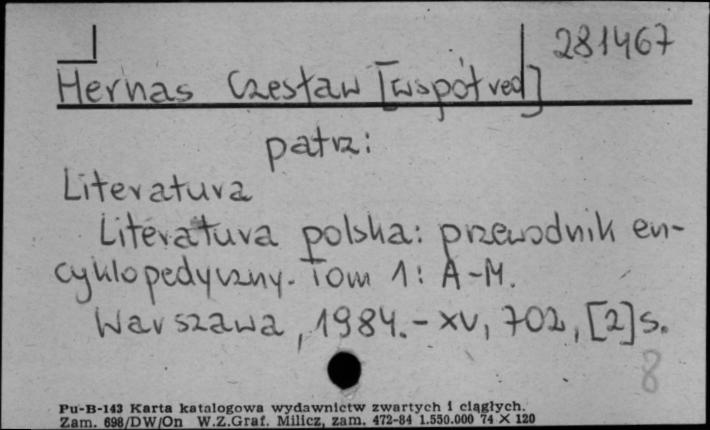 281467
Hernas Czesław [współred]
patrz:
Literatura
Literatura polska: przewodnik en-
cyklopedyczny. Tom 1: A-M.
Warszawa, 1984.- XV, 702, [2]s.
8
Pu-B-143 Karta katalogowa wydawnictw zwartych i ciągłych.
Zam. 698/DW/On W.Z.Graf. Milicz, zam. 472-84 1.550.000 74 X 120